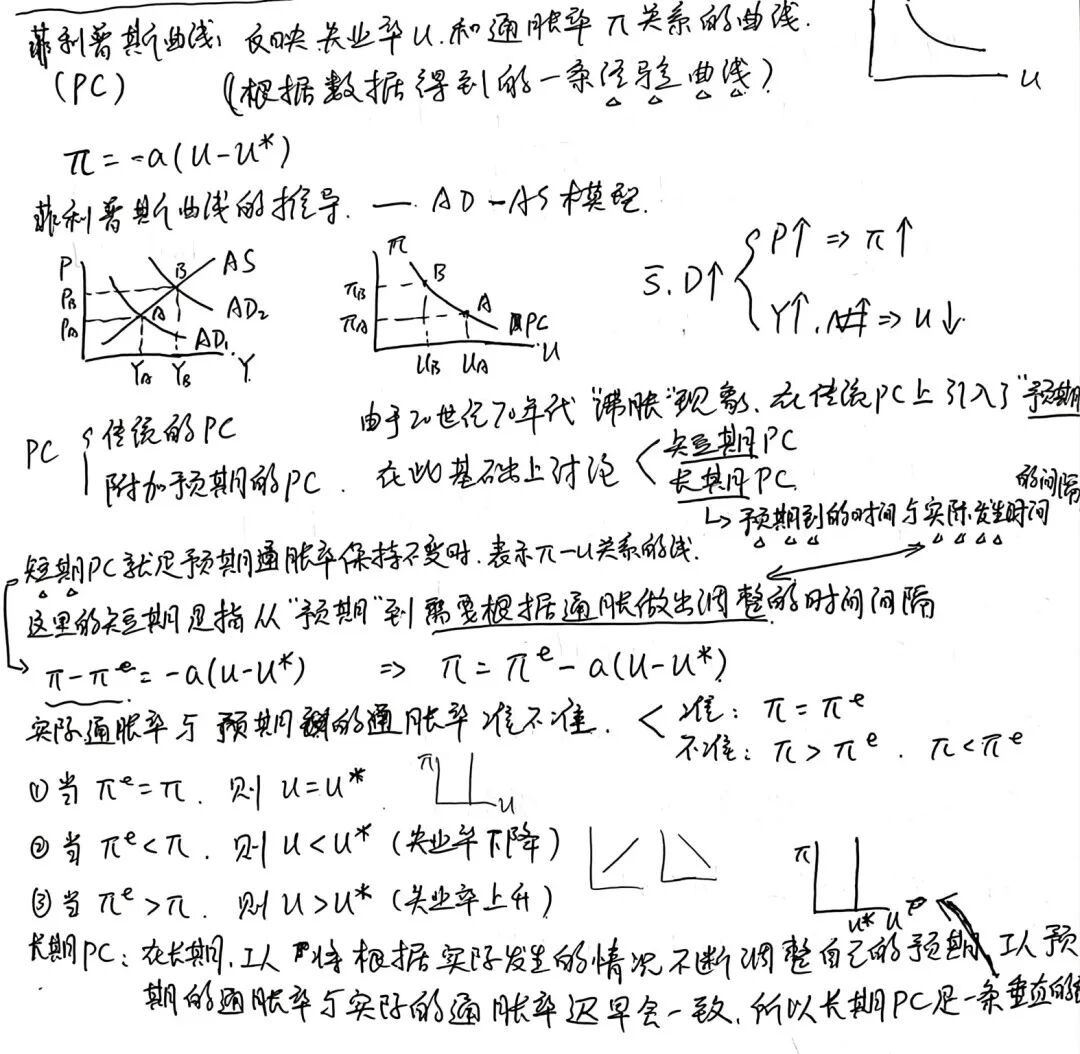 菲利普斯曲线：反映失业率u.和通胀率π关系的曲线.
(PC) (根据数据得到的一条经验曲线)
u
π = -a(u-u*)
菲利普斯曲线的推导. — AD-AS模型.
P AS B P_B A P_A AD₂ AD₁ Y_A Y_B Y
π B π_B A π_A PC u_B u_A u
S̄. D↑ { P↑ => π↑
Y↑. N↑ => u↓
由于20世纪70年代“滞胀”现象. 在传统PC上引入了“预期
PC { 传统的PC
附加预期的PC. 在此基础上讨论 < 短期PC
长期PC.
↳ 预期到的时间与实际发生时间的间隔
短期PC就是预期通胀率保持不变时.表示π-u关系的线.
这里的短期是指从“预期”到需要根据通胀做出调整的时间间隔
π-πᵉ = -a(u-u*) => π = πᵉ - a(u-u*)
实际通胀率与预期的通胀率准不准. < 准: π = πᵉ
不准: π > πᵉ. π < πᵉ
①当 πᵉ = π. 则 u = u*. π u
②当 πᵉ < π. 则 u < u* (失业率下降)
③当 πᵉ > π. 则 u > u* (失业率上升)
π u* u
长期PC: 在长期.工人将根据实际发生的情况不断调整自己的预期 工人预
期的通胀率与实际的通胀率迟早会一致.所以长期PC是一条垂直的